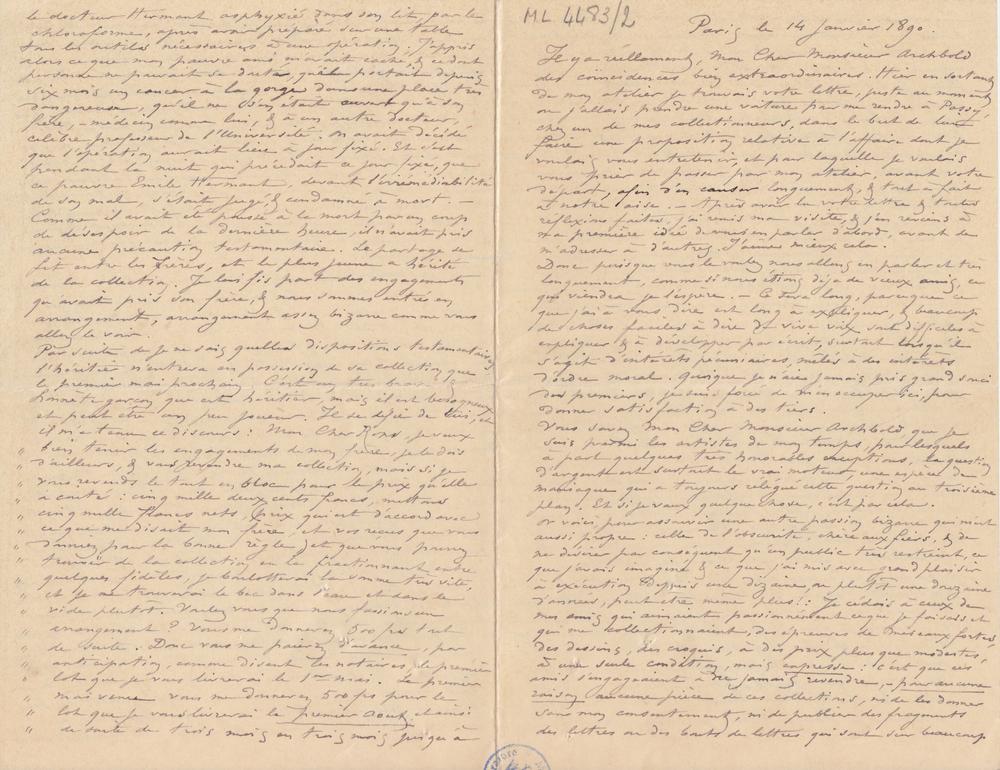 ML 4483/2
Paris le 14 Janvier 1890.
Il y a réellement, Mon Cher Monsieur Archbold
des coïncidences bien extraordinaires. Hier en sortant
de mon atelier je trouvais votre lettre, juste au moment
où j'allais prendre une voiture pour me rendre à Passy,
chez un de mes collectionneurs, dans le but de lui
faire une proposition relative à l'affaire dont je
voulais vous entretenir, et pour laquelle je voulais
vous prier de passer par mon atelier, avant votre
départ, afin d'en causer longuement, & tout à fait
à notre aise. — Après avoir lu votre lettre & toutes
réflexions faites, j'ai remis ma visite, & j'en reviens à
ma première idée de vous en parler d'abord, avant de
m'adresser à d'autres. J'aime mieux cela.
Donc puisque vous le voulez nous allons en parler et très
longuement, comme si nous étions déjà de vieux amis, ce
qui viendra je l'espère. — Ce sera long, parce que ce
que j'ai à vous dire est long à expliquer, & beaucoup
de choses faciles à dire de vive voix sont difficiles à
expliquer & à développer par écrit, surtout lorsqu'il
s'agit d'intérêts pécuniaires, mêlés à des intérêts
d'ordre moral. Quoique je n'aie jamais pris grand souci
des premiers, je suis forcé de m'en occuper ici, pour
donner satisfaction à des tiers.
Vous savez Mon Cher Monsieur Archbold que je
suis parmi les artistes de mon temps, pour lesquels
à part quelques très honorables exceptions, la question
d'argent est surtout le vrai moteur une espèce de
maniaque qui a toujours relégué cette question au troisième
plan. Et si je vaux quelque chose, c'est par cela.
Or voici, pour assouvir une autre passion bizarre qui m'est
aussi propre: celle de l'obscurité, chère aux fiers, & de
ne désirer par conséquent qu'un public très restreint, ce
que j'avais imaginé & ce que j'ai mis avec grand plaisir
à exécution Depuis une dizaine, ou plutôt une douzaine
d'années, peut être même plus!: Je cédais à ceux de
mes amis qui aimaient passionnément ce que je faisais et
qui me collectionnaient, des épreuves de mes eaux fortes,
des dessins, des croquis, à des prix plus que modestes,
à une seule condition, mais expresse: c'est que ces
amis s'engageaient à ne jamais revendre, — pour aucune
raison, aucune pièce de ces collections, ni de les donner
sans mon consentement, ni de publier des fragments
des lettres ou des bouts de lettres qui sont sur beaucoup
le docteur Hermant, asphyxié dans son lit, par le
chloroforme, après avoir préparé sur une table
tous les outils nécessaires à une opération. J'appris
alors ce que mon pauvre ami m'avait caché, & ce dont
personne ne pouvait se douter, qu'il portait depuis
six mois un cancer à la gorge dans une place très
dangereuse, qu'il ne s'en était ouvert qu'à son
frère, — médecin comme lui, & à un autre docteur,
célèbre professeur de l'Université. On avait décidé
que l'opération aurait lieu à jour fixé. Et c'est
pendant la nuit qui précédait ce jour fixé, que
ce pauvre Emile Hermant, devant l'irrémédiabilité
de son mal, s'était jugé, & condamné à mort. —
Comme il avait été poussé à la mort par un coup
de désespoir de la dernière heure, il n'avait pris
aucune précaution testamentaire. Le partage se
fit entre les frères, et le plus jeune a hérité
de la collection. Je lui fis part des engagements
qu'avait pris son frère, & nous sommes entrés en
arrangement, arrangement assez bizarre comme vous
allez le voir.
Par suite de je ne sais quelles dispositions testamentaires
l'héritier n'entrera en possession de sa collection que
le premier mai prochain. C'est un très brave &
honnête garçon que cet héritier, mais il est besogneux,
et peut être un peu joueur. Il se défie de lui, et
il m'a tenu ce discours: Mon Cher Rops, je veux
„ bien tenir les engagements de mon frère, je le dois
„ d'ailleurs, & vous revendre ma collection, mais si je
„ vous revends le tout en bloc pour le prix qu'elle
„ a coûté: cinq mille deux cents francs, mettons
„ cinq mille francs nets, prix qui est d'accord avec
„ ce que me disait mon frère, et vos reçus que vous
„ donniez pour la bonne règle, et que vous pouvez
„ trouver de la collection en la fractionnant entre
„ quelques fidèles, je boulotterai la somme très vite,
„ et je me trouverai le bec dans l'eau et dans le
„ vide plutôt. Voulez vous que nous fassions un
„ arrangement? Vous me donnerez 500 frs tout
„ de suite. Donc vous me paierez d'avance, par
„ anticipation, comme disent les notaires, le premier
„ lot que je vous livrerai le 1er mai. Le premier
„ mai venu vous me donnerez 500 frs pour le
„ lot que je vous livrerai le premier Août & ainsi
„ de suite de trois mois en trois mois jusqu'à